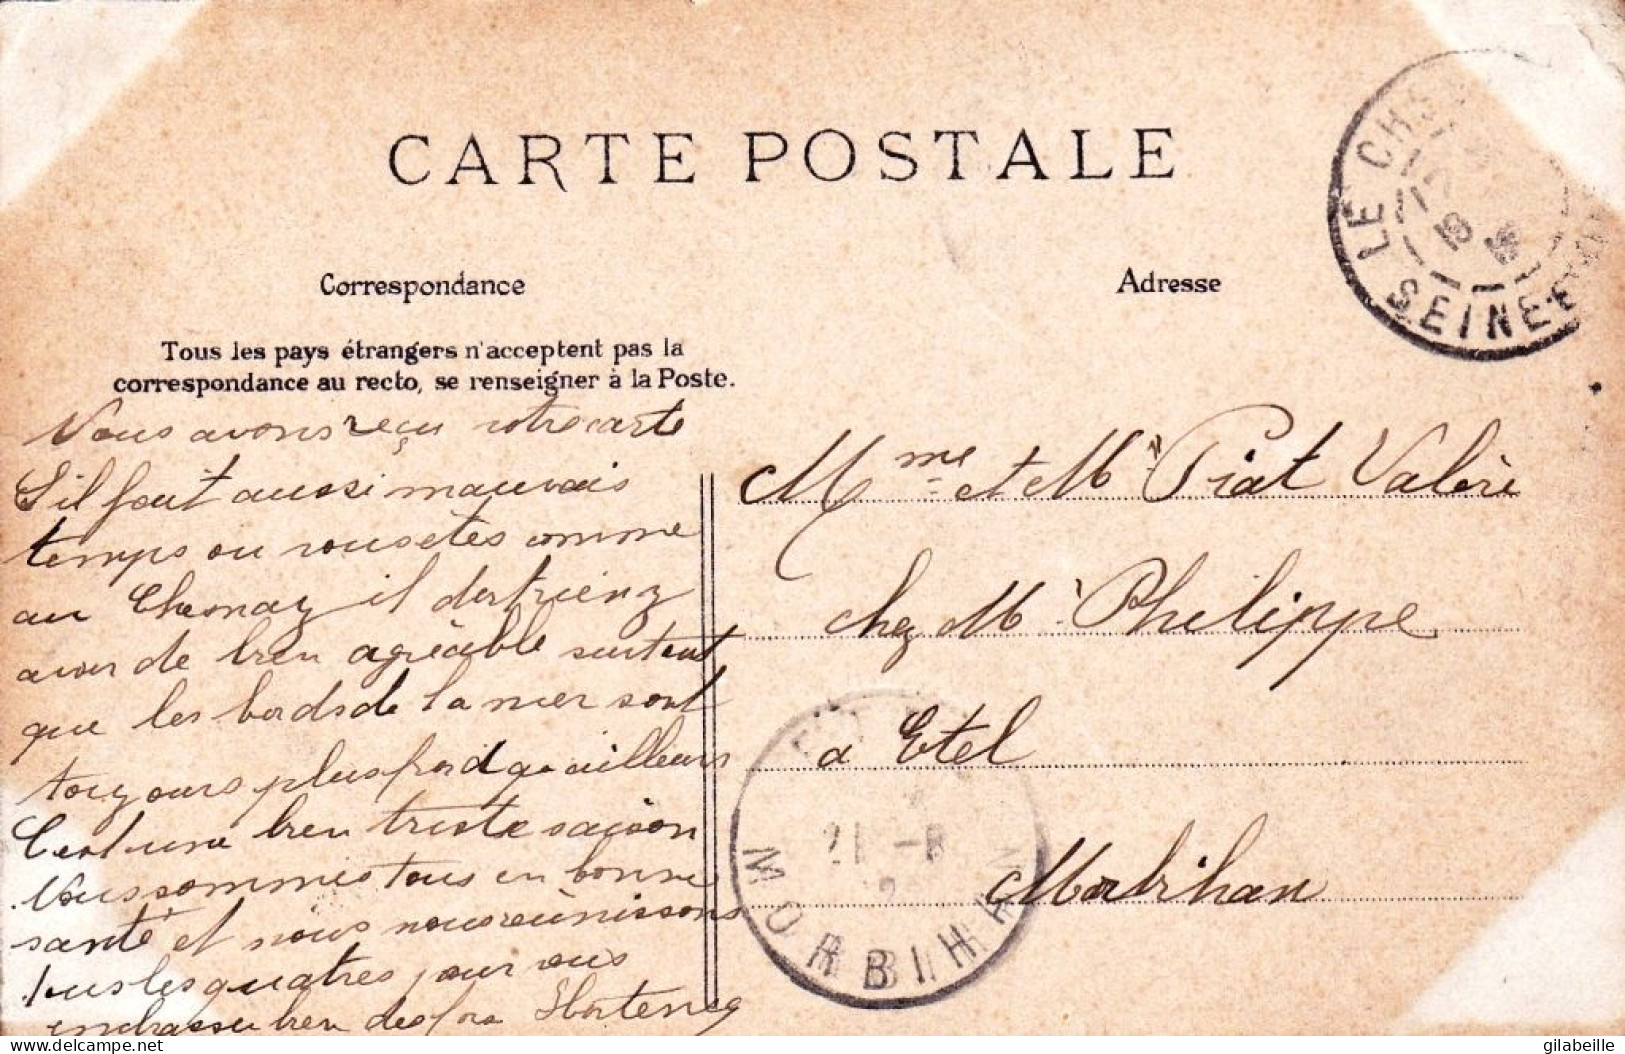 CARTE POSTALE
Correspondance
Adresse
Tous les pays étrangers n'acceptent pas la
correspondance au recto, se renseigner à la Poste.
Nous avons reçu votre carte
S'il fait aussi mauvais
temps ou vous êtes comme
au Chesnay il
avoir de bien agréable surtout
que les bords de la mer sont
toujours plus froid qu'ailleurs
C'est une bien triste saison
Nous sommes tous en bonne
santé et nous nous réunissons
tous les quatres pour vous
embrasser bien des fois Hortense
Mme et Mr Piat Valère
chez Mr Philippe
a Etel
Morbihan
LE CHES
SEINE-ET
18
21 -8
MORBIHAN
delcampe.net
gilabeille